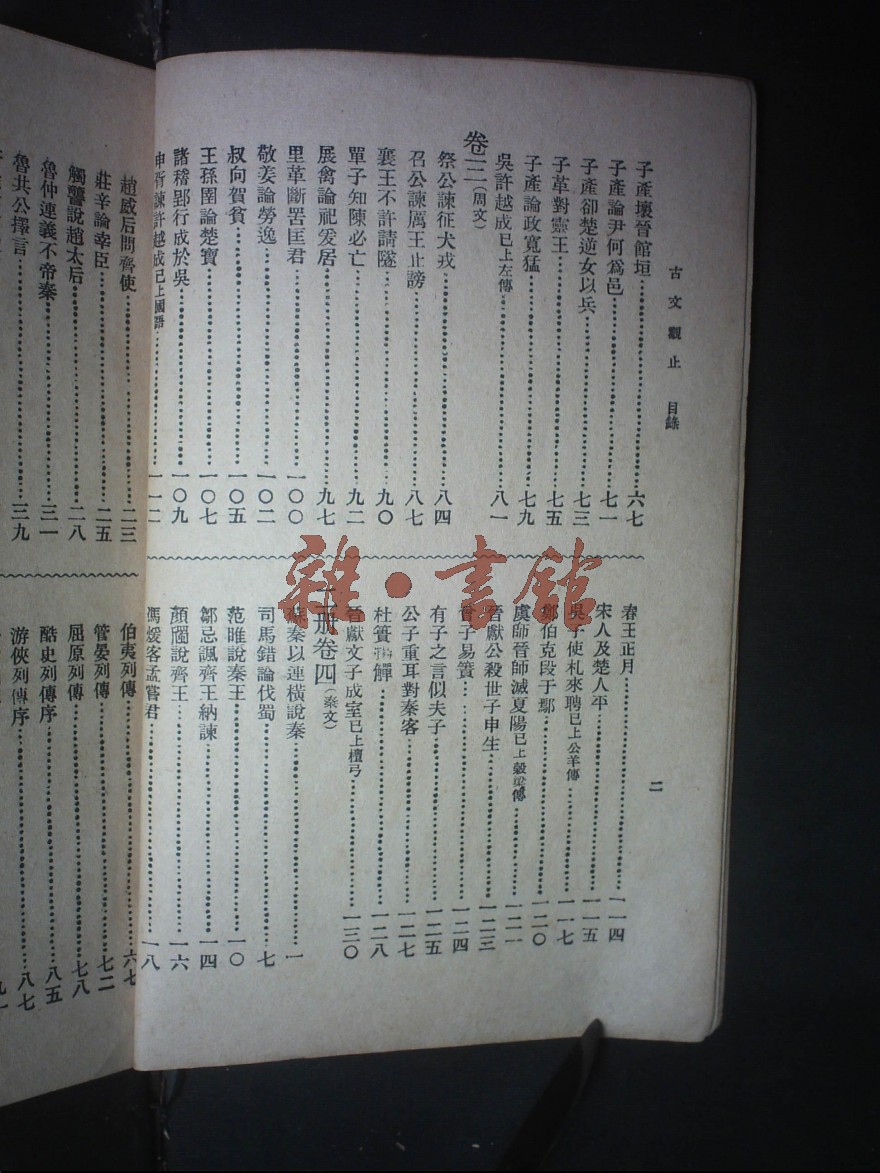 古文觀止 目錄
二
子產壞晉館垣 六七
子產論尹何爲邑 七一
子產卻楚逆女以兵 七三
子革對靈王 七五
子產論政寬猛 七九
吳許越成已上左傳 八一
卷三(周文)
祭公諫征犬戎 八四
召公諫厲王止謗 八七
襄王不許請隧 九〇
單子知陳必亡 九二
展禽論祀爰居 九七
里革斷罟匡君 一〇〇
敬姜論勞逸 一〇二
叔向賀貧 一〇五
王孫圉論楚寶 一〇七
諸稽郢行成於吳 一〇九
申胥諫許越成已上國語 一一二
春王正月 一一四
宋人及楚人平 一一五
吳子使札來聘已上公羊傳 一一七
鄭伯克段于鄢 一二〇
虞師晉師滅夏陽已上穀梁傳 一二一
晉獻公殺世子申生 一二三
曾子易簀 一二四
有子之言似夫子 一二五
公子重耳對秦客 一二七
杜蕢觶 一二八
晉獻文子成室已上檀弓 一三〇
册卷四(秦文)
蘇秦以連橫說秦 一
司馬錯論伐蜀 七
范雎說秦王 一〇
鄒忌諷齊王納諫 一四
顏斶說齊王 一六
馮煖客孟嘗君 一八
趙威后問齊使 二三
莊辛論幸臣 二五
觸讋說趙太后 二八
魯仲連義不帝秦 三一
魯共公擇言 三九
伯夷列傳 六七
管晏列傳 七二
屈原列傳 七八
酷史列傳序 八五
游俠列傳序 八七
雜·書館